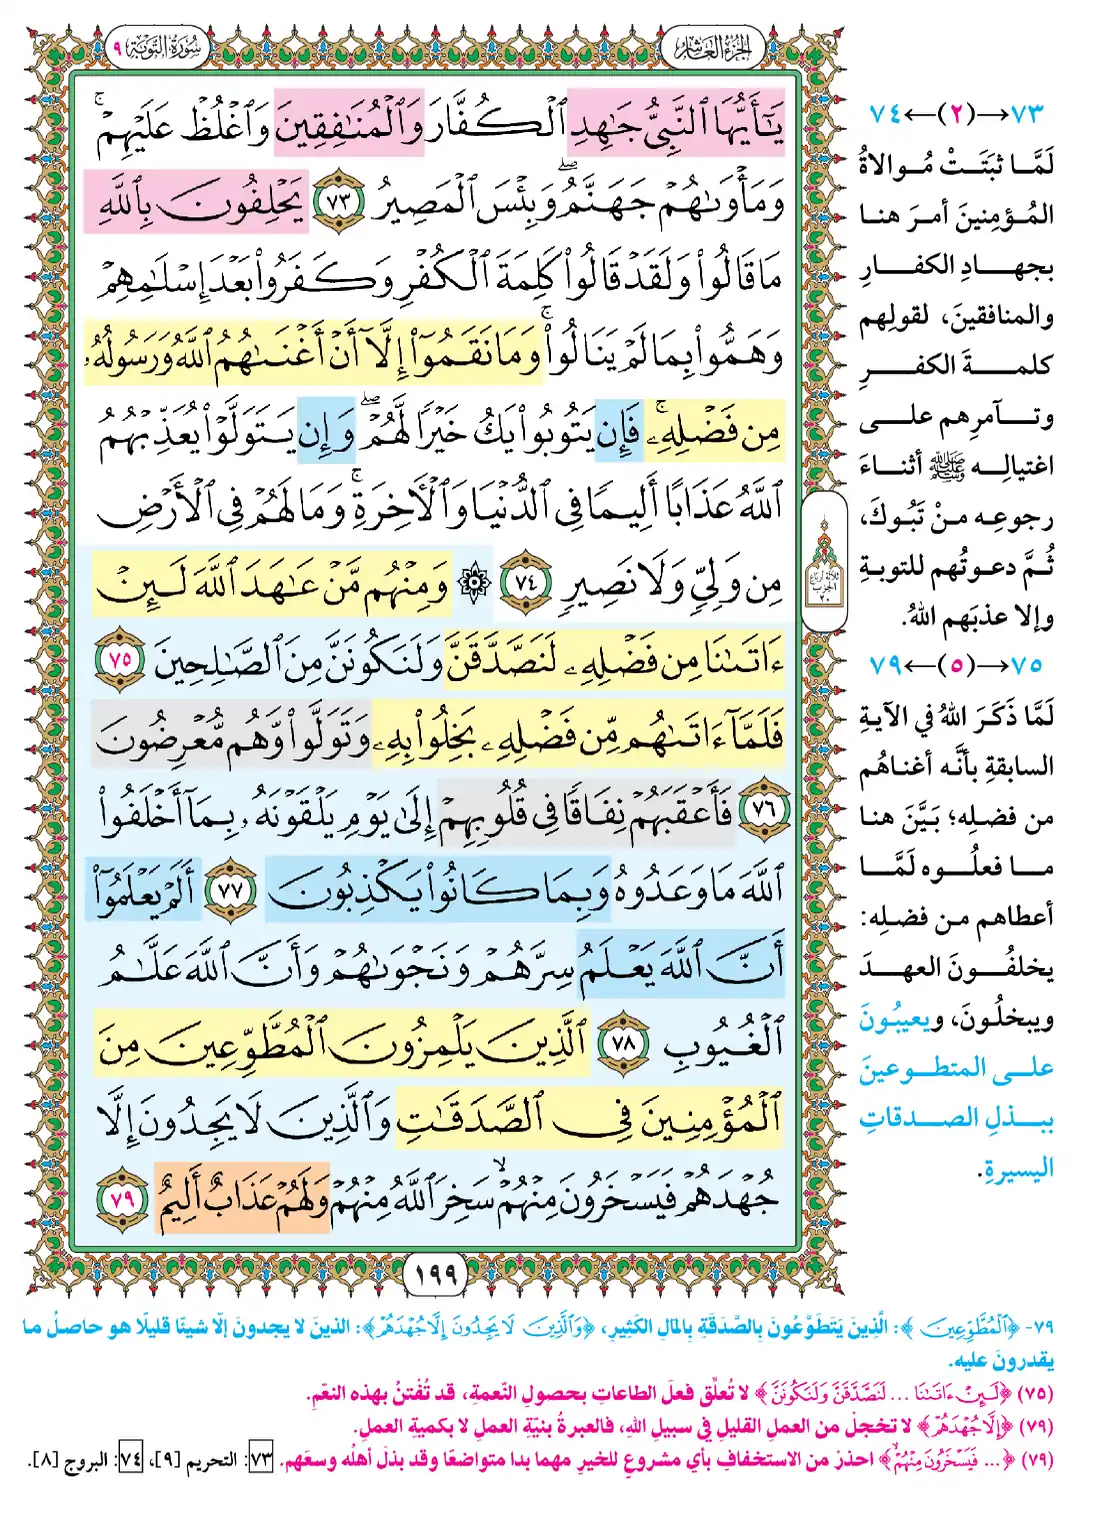 الجزء العاشر
سورة التوبة ٩
يَـٰٓأَيُّهَا ٱلنَّبِىُّ جَـٰهِدِ ٱلْكُفَّارَ وَٱلْمُنَـٰفِقِينَ وَٱغْلُظْ عَلَيْهِمْ ۚ
وَمَأْوَىٰهُمْ جَهَنَّمُ ۖ وَبِئْسَ ٱلْمَصِيرُ ٧٣ يَحْلِفُونَ بِٱللَّهِ
مَا قَالُوا۟ وَلَقَدْ قَالُوا۟ كَلِمَةَ ٱلْكُفْرِ وَكَفَرُوا۟ بَعْدَ إِسْلَـٰمِهِمْ
وَهَمُّوا۟ بِمَا لَمْ يَنَالُوا۟ ۚ وَمَا نَقَمُوٓا۟ إِلَّآ أَنْ أَغْنَىٰهُمُ ٱللَّهُ وَرَسُولُهُۥ
مِن فَضْلِهِۦ ۚ فَإِن يَتُوبُوا۟ يَكُ خَيْرًا لَّهُمْ ۖ وَإِن يَتَوَلَّوْا۟ يُعَذِّبْهُمُ
ٱللَّهُ عَذَابًا أَلِيمًا فِى ٱلدُّنْيَا وَٱلْـَٔاخِرَةِ ۚ وَمَا لَهُمْ فِى ٱلْأَرْضِ
مِن وَلِىٍّ وَلَا نَصِيرٍ ٧٤ ۞ وَمِنْهُم مَّنْ عَـٰهَدَ ٱللَّهَ لَئِنْ
ءَاتَىٰنَا مِن فَضْلِهِۦ لَنَصَّدَّقَنَّ وَلَنَكُونَنَّ مِنَ ٱلصَّـٰلِحِينَ ٧٥
فَلَمَّآ ءَاتَىٰهُم مِّن فَضْلِهِۦ بَخِلُوا۟ بِهِۦ وَتَوَلَّوا۟ وَّهُم مُّعْرِضُونَ
٧٦ فَأَعْقَبَهُمْ نِفَاقًا فِى قُلُوبِهِمْ إِلَىٰ يَوْمِ يَلْقَوْنَهُۥ بِمَآ أَخْلَفُوا۟
ٱللَّهَ مَا وَعَدُوهُ وَبِمَا كَانُوا۟ يَكْذِبُونَ ٧٧ أَلَمْ يَعْلَمُوٓا۟
أَنَّ ٱللَّهَ يَعْلَمُ سِرَّهُمْ وَنَجْوَىٰهُمْ وَأَنَّ ٱللَّهَ عَلَّـٰمُ
ٱلْغُيُوبِ ٧٨ ٱلَّذِينَ يَلْمِزُونَ ٱلْمُطَّوِّعِينَ مِنَ
ٱلْمُؤْمِنِينَ فِى ٱلصَّدَقَـٰتِ وَٱلَّذِينَ لَا يَجِدُونَ إِلَّا
جُهْدَهُمْ فَيَسْخَرُونَ مِنْهُمْ ۙ سَخِرَ ٱللَّهُ مِنْهُمْ وَلَهُمْ عَذَابٌ أَلِيمٌ ٧٩
١٩٩
ثلاثة أرباع
الحزب
٢٠
٧٣→(٢)←٧٤
لَمَّا ثبَتَتْ مُوالاةُ
المُؤمِنينَ أمرَ هنا
بجهادِ الكفارِ
والمنافقينَ، لقولِهم
كلمةَ الكفرِ
وتآمرِهم على
اغتيالِه ﷺ أثناءَ
رجوعِه منْ تَبُوكَ،
ثُمَّ دعوتُهم للتوبةِ
وإلا عذبَهم اللهُ.
٧٥→(٥)←٧٩
لَمَّا ذَكَرَ اللهُ في الآيةِ
السابقةِ بأنَّه أغناهُم
من فضلِه؛ بَيَّنَ هنا
ما فعلُوه لَمَّا
أعطاهم من فضلِه:
يخلفُونَ العهدَ
ويبخلُونَ، ويعيبُونَ
على المتطوعينَ
ببذلِ الصدقاتِ
اليسيرةِ.
٧٩- ﴿ٱلْمُطَّوِّعِينَ﴾: الَّذِينَ يَتَطَوَّعُونَ بِالصَّدَقَةِ بِالمَالِ الكَثِيرِ، ﴿وَٱلَّذِينَ لَا يَجِدُونَ إِلَّا جُهْدَهُمْ﴾: الذينَ لا يجدونَ إلَّا شيئًا قليلًا هو حاصلُ ما
يقدرونَ عليه.
(٧٥) ﴿لَئِنْ ءَاتَىٰنَا ... لَنَصَّدَّقَنَّ وَلَنَكُونَنَّ﴾ لا تُعلِّق فعلَ الطاعاتِ بحصولِ النِّعمةِ، قد تُفْتنُ بهذه النعَمِ.
(٧٩) ﴿إِلَّا جُهْدَهُمْ﴾ لا تخجلْ من العملِ القليلِ في سبيلِ اللهِ، فالعبرةُ بنيّةِ العملِ لا بكميةِ العملِ.
(٧٩) ﴿... فَيَسْخَرُونَ مِنْهُمْ ۙ﴾ احذرْ من الاستخفافِ بأي مشروعٍ للخيرِ مهما بدا متواضعًا وقد بذلَ أهلُه وسعَهم. ٧٣: التحريم [٩]، ٧٤: البروج [٨].